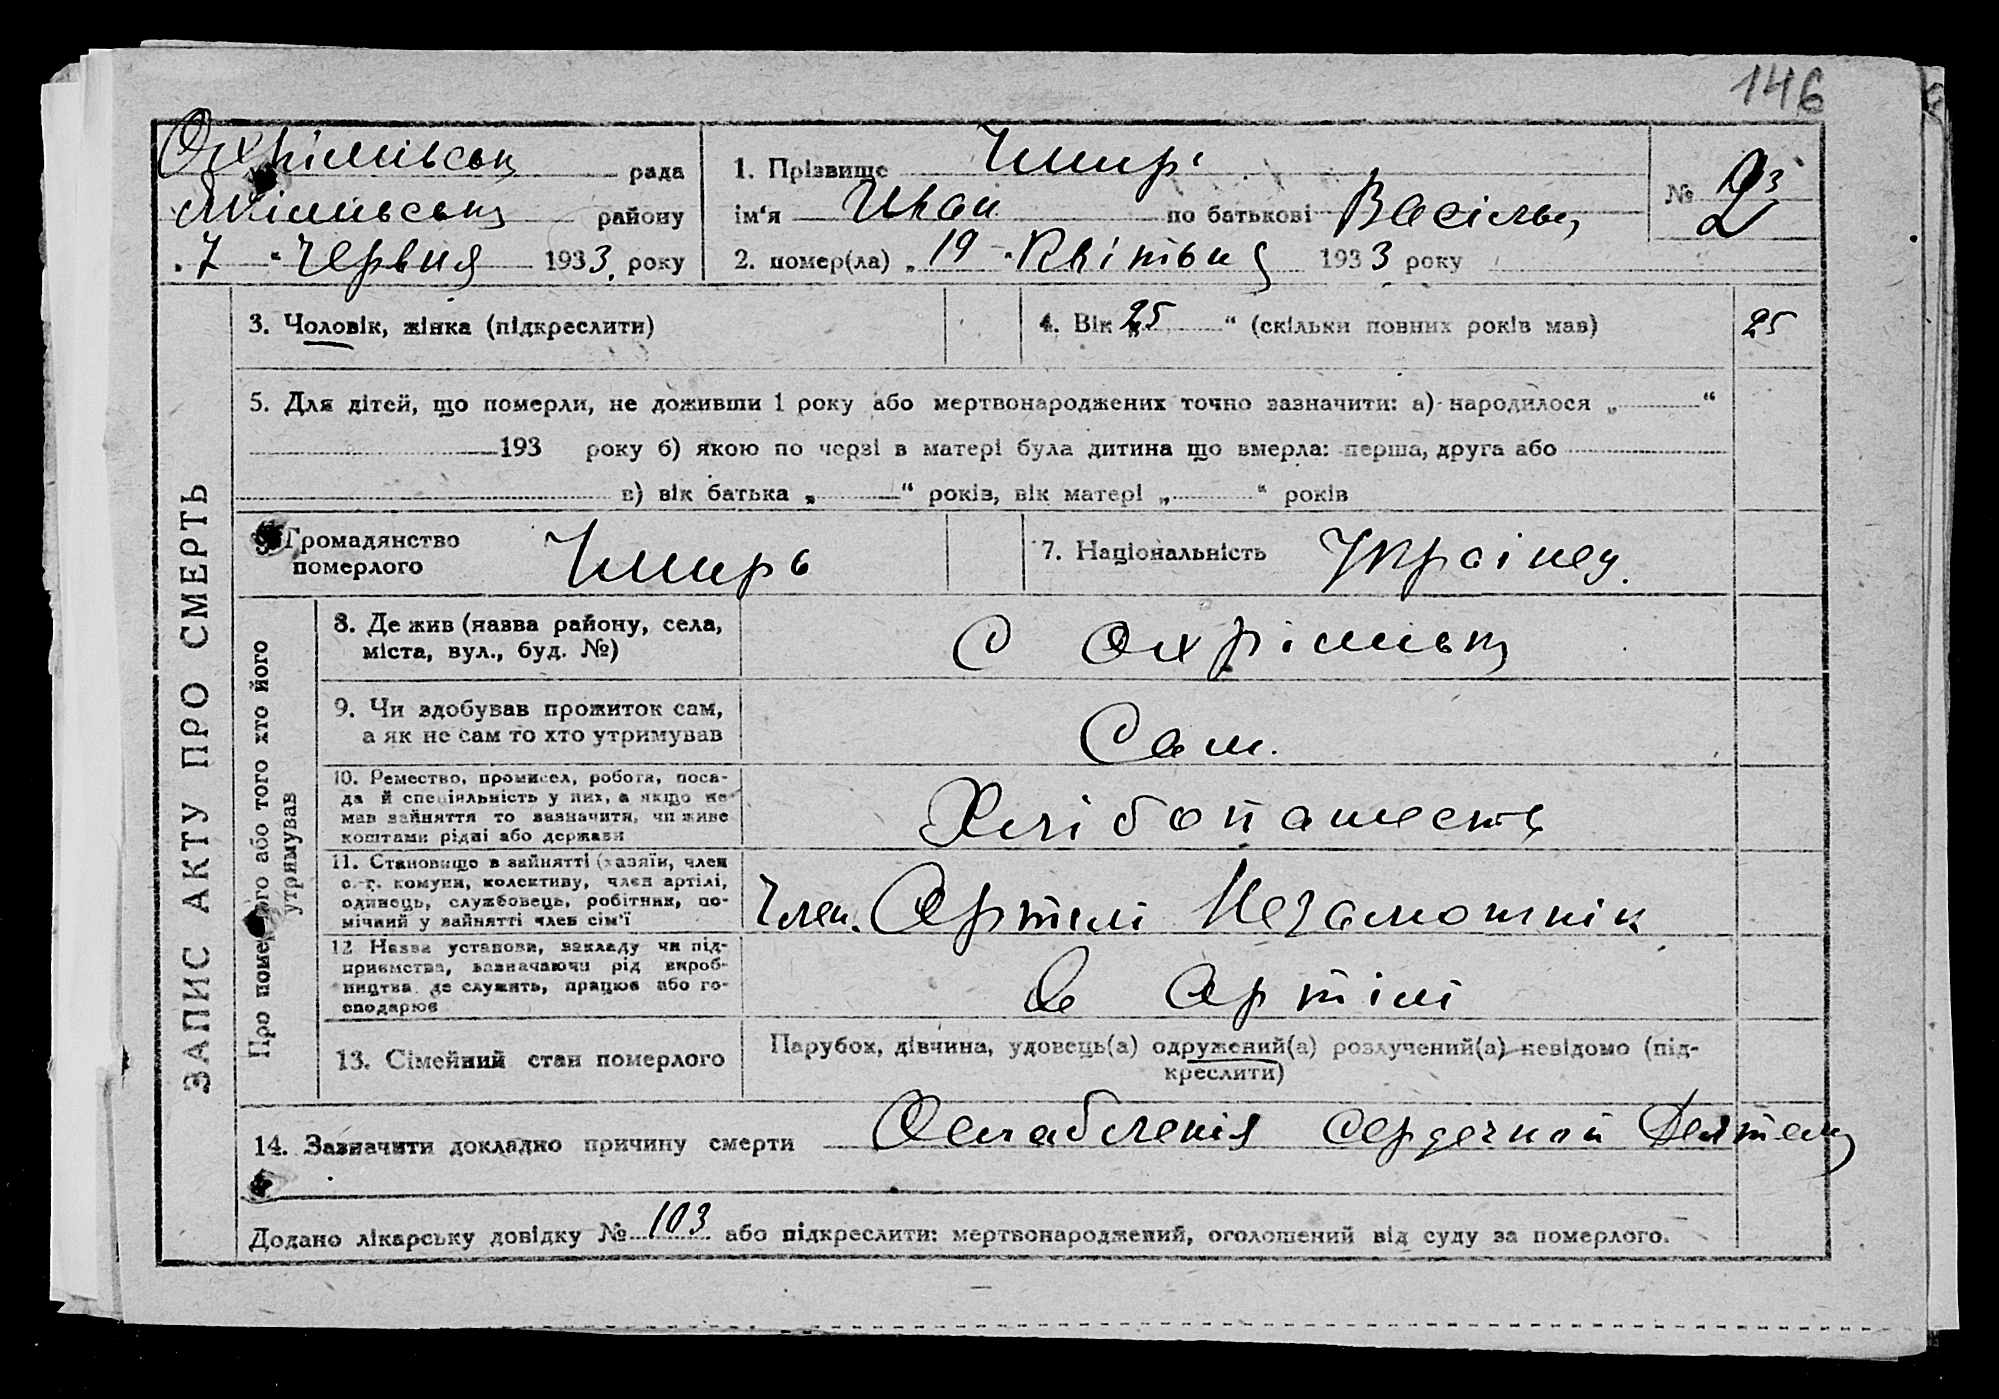 146
Охрімівськ рада
Якімівськ району
„7“ Червня 1933, року
1. Прізвище Чмирь
ім'я Иван по батькові Васільв
2. помер(ла) „19“ Квітня 1933 року
№ 2
3. Чоловік, жінка (підкреслити)
4. Вік „25“ (скільки повних років мав)
25
5. Для дітей, що померли, не доживши 1 року або мертвонароджених точно зазначити: а) народилося „ “
193 року б) якою по черзі в матері була дитина що вмерла: перша, друга або
в) вік батька „ “ років, вік матері „ “ років
Громадянство
померлого Чмирь
7. Національність Украінец.
ЗАПИС АКТУ ПРО СМЕРТЬ
Про померлого або того хто його
утримував
8. Де жив (назва району, села,
міста, вул., буд. №)
С Охрімівк
9. Чи здобував прожиток сам,
а як не сам то хто утримував
Сам.
10. Ремество, промисел, робота, поса-
да й спеціяльність у них, а якщо не
мав зайняття то зазначити, чи живе
коштами рідні або держави
Хлібопашеств
11. Становище в зайнятті (хазяїн, член
с.-г. комуни, колективу, член артілі,
одинець, службовець, робітник, по-
мічний у зайнятті член сім'ї
Член. Артилі Незаможнік
12 Назва установи, закладу чи під-
приємства, зазначаючи рід вироб-
ництва де служить, працює або го-
сподарює
в Артілі
13. Сімейний стан померлого
Парубок, дівчина, удовець(а) одружений(а) розлучений(а) невідомо (під-
креслити)
14. Зазначити докладно причину смерти Ослабленія сердечной Деятель
Додано лікарську довідку № 103 або підкреслити: мертвонароджений, оголошений від суду за померлого.